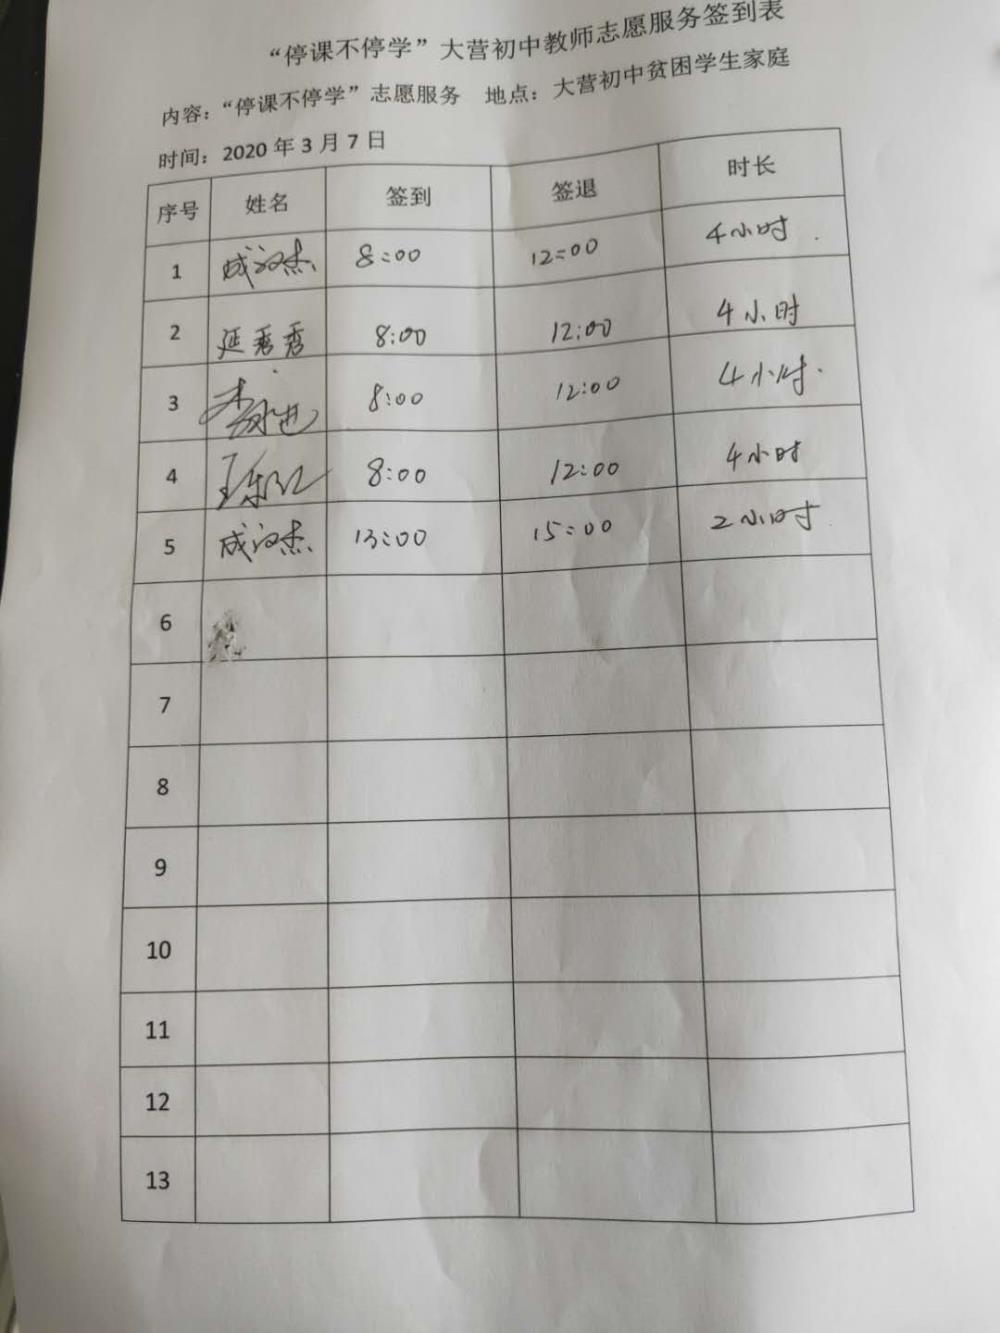 “停课不停学”大营初中教师志愿服务签到表
内容：“停课不停学”志愿服务 地点：大营初中贫困学生家庭
时间：2020 年 3 月 7 日
序号 姓名 签到 签退 时长
1 成汉杰 8:00 12:00 4小时
2 延秀秀 8:00 12:00 4小时
3 8:00 12:00 4小时
4 8:00 12:00 4小时
5 成汉杰 13:00 15:00 2小时
6
7
8
9
10
11
12
13